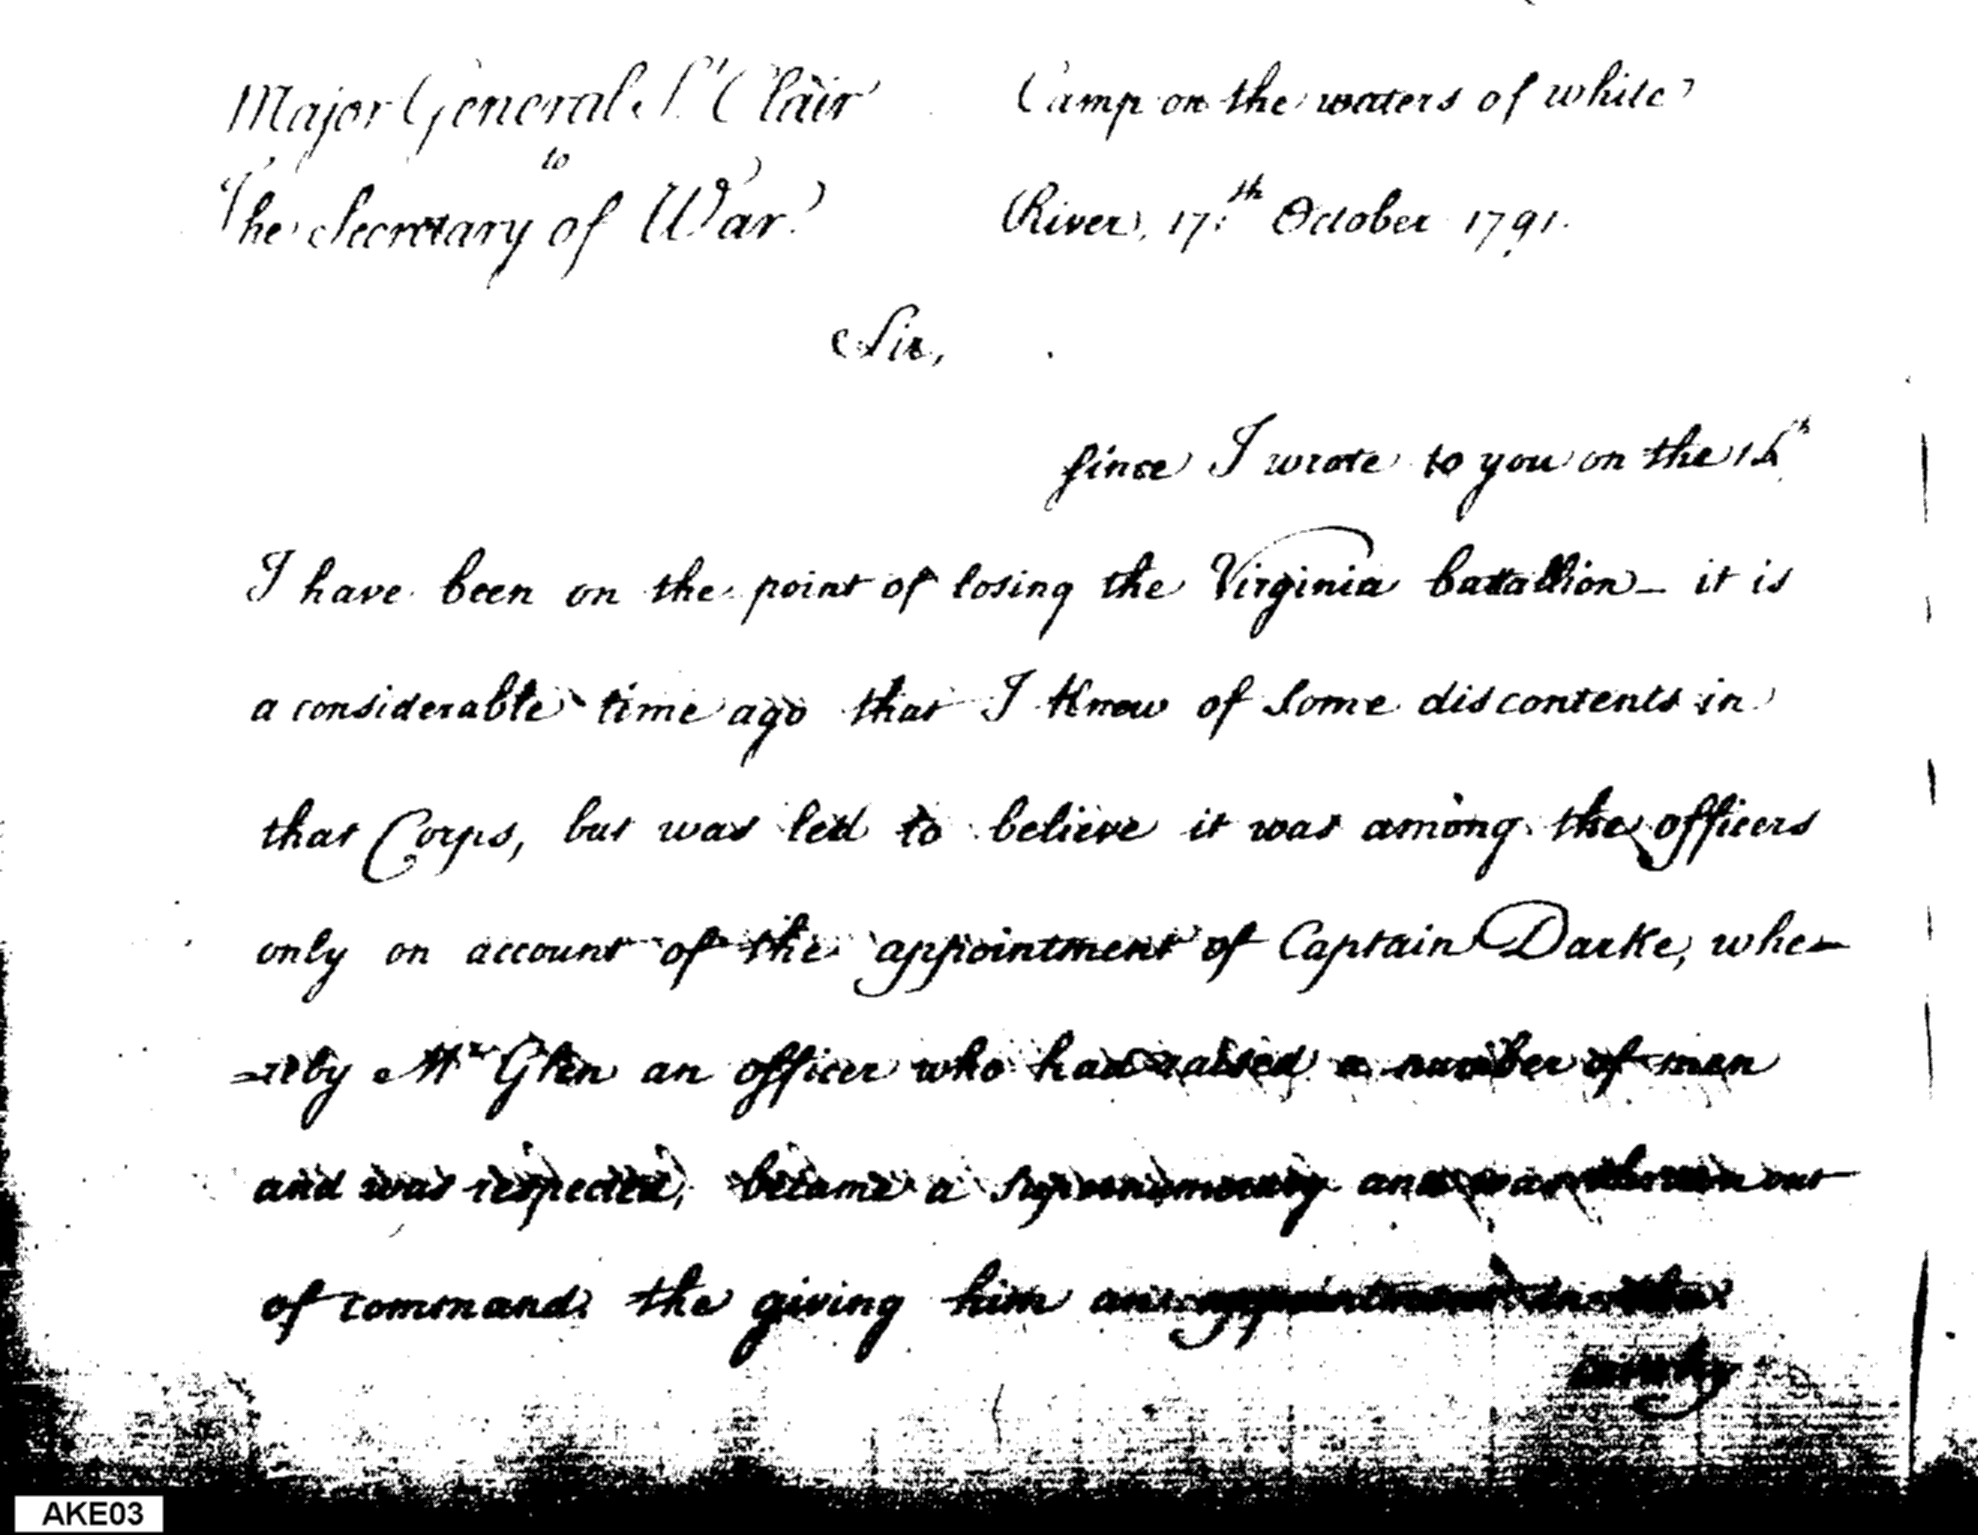 Major General St Clair
to
The Secretary of War.
Camp on the waters of white
River, 17:th October 1791.
Sir,
Since I wrote to you on the
I have been on the point of losing the Virginia batallion_ it is
a considerable time ago that I knew of some discontents in
that Corps, but was led to believe it was among the officers
only on account of the appointment of Captain Darke, whe-
-reby Mr Glen an officer who had raised a number of men
and was respected, became a supernumerary and was thrown out
of command. the giving him an appointment in the
AKE03